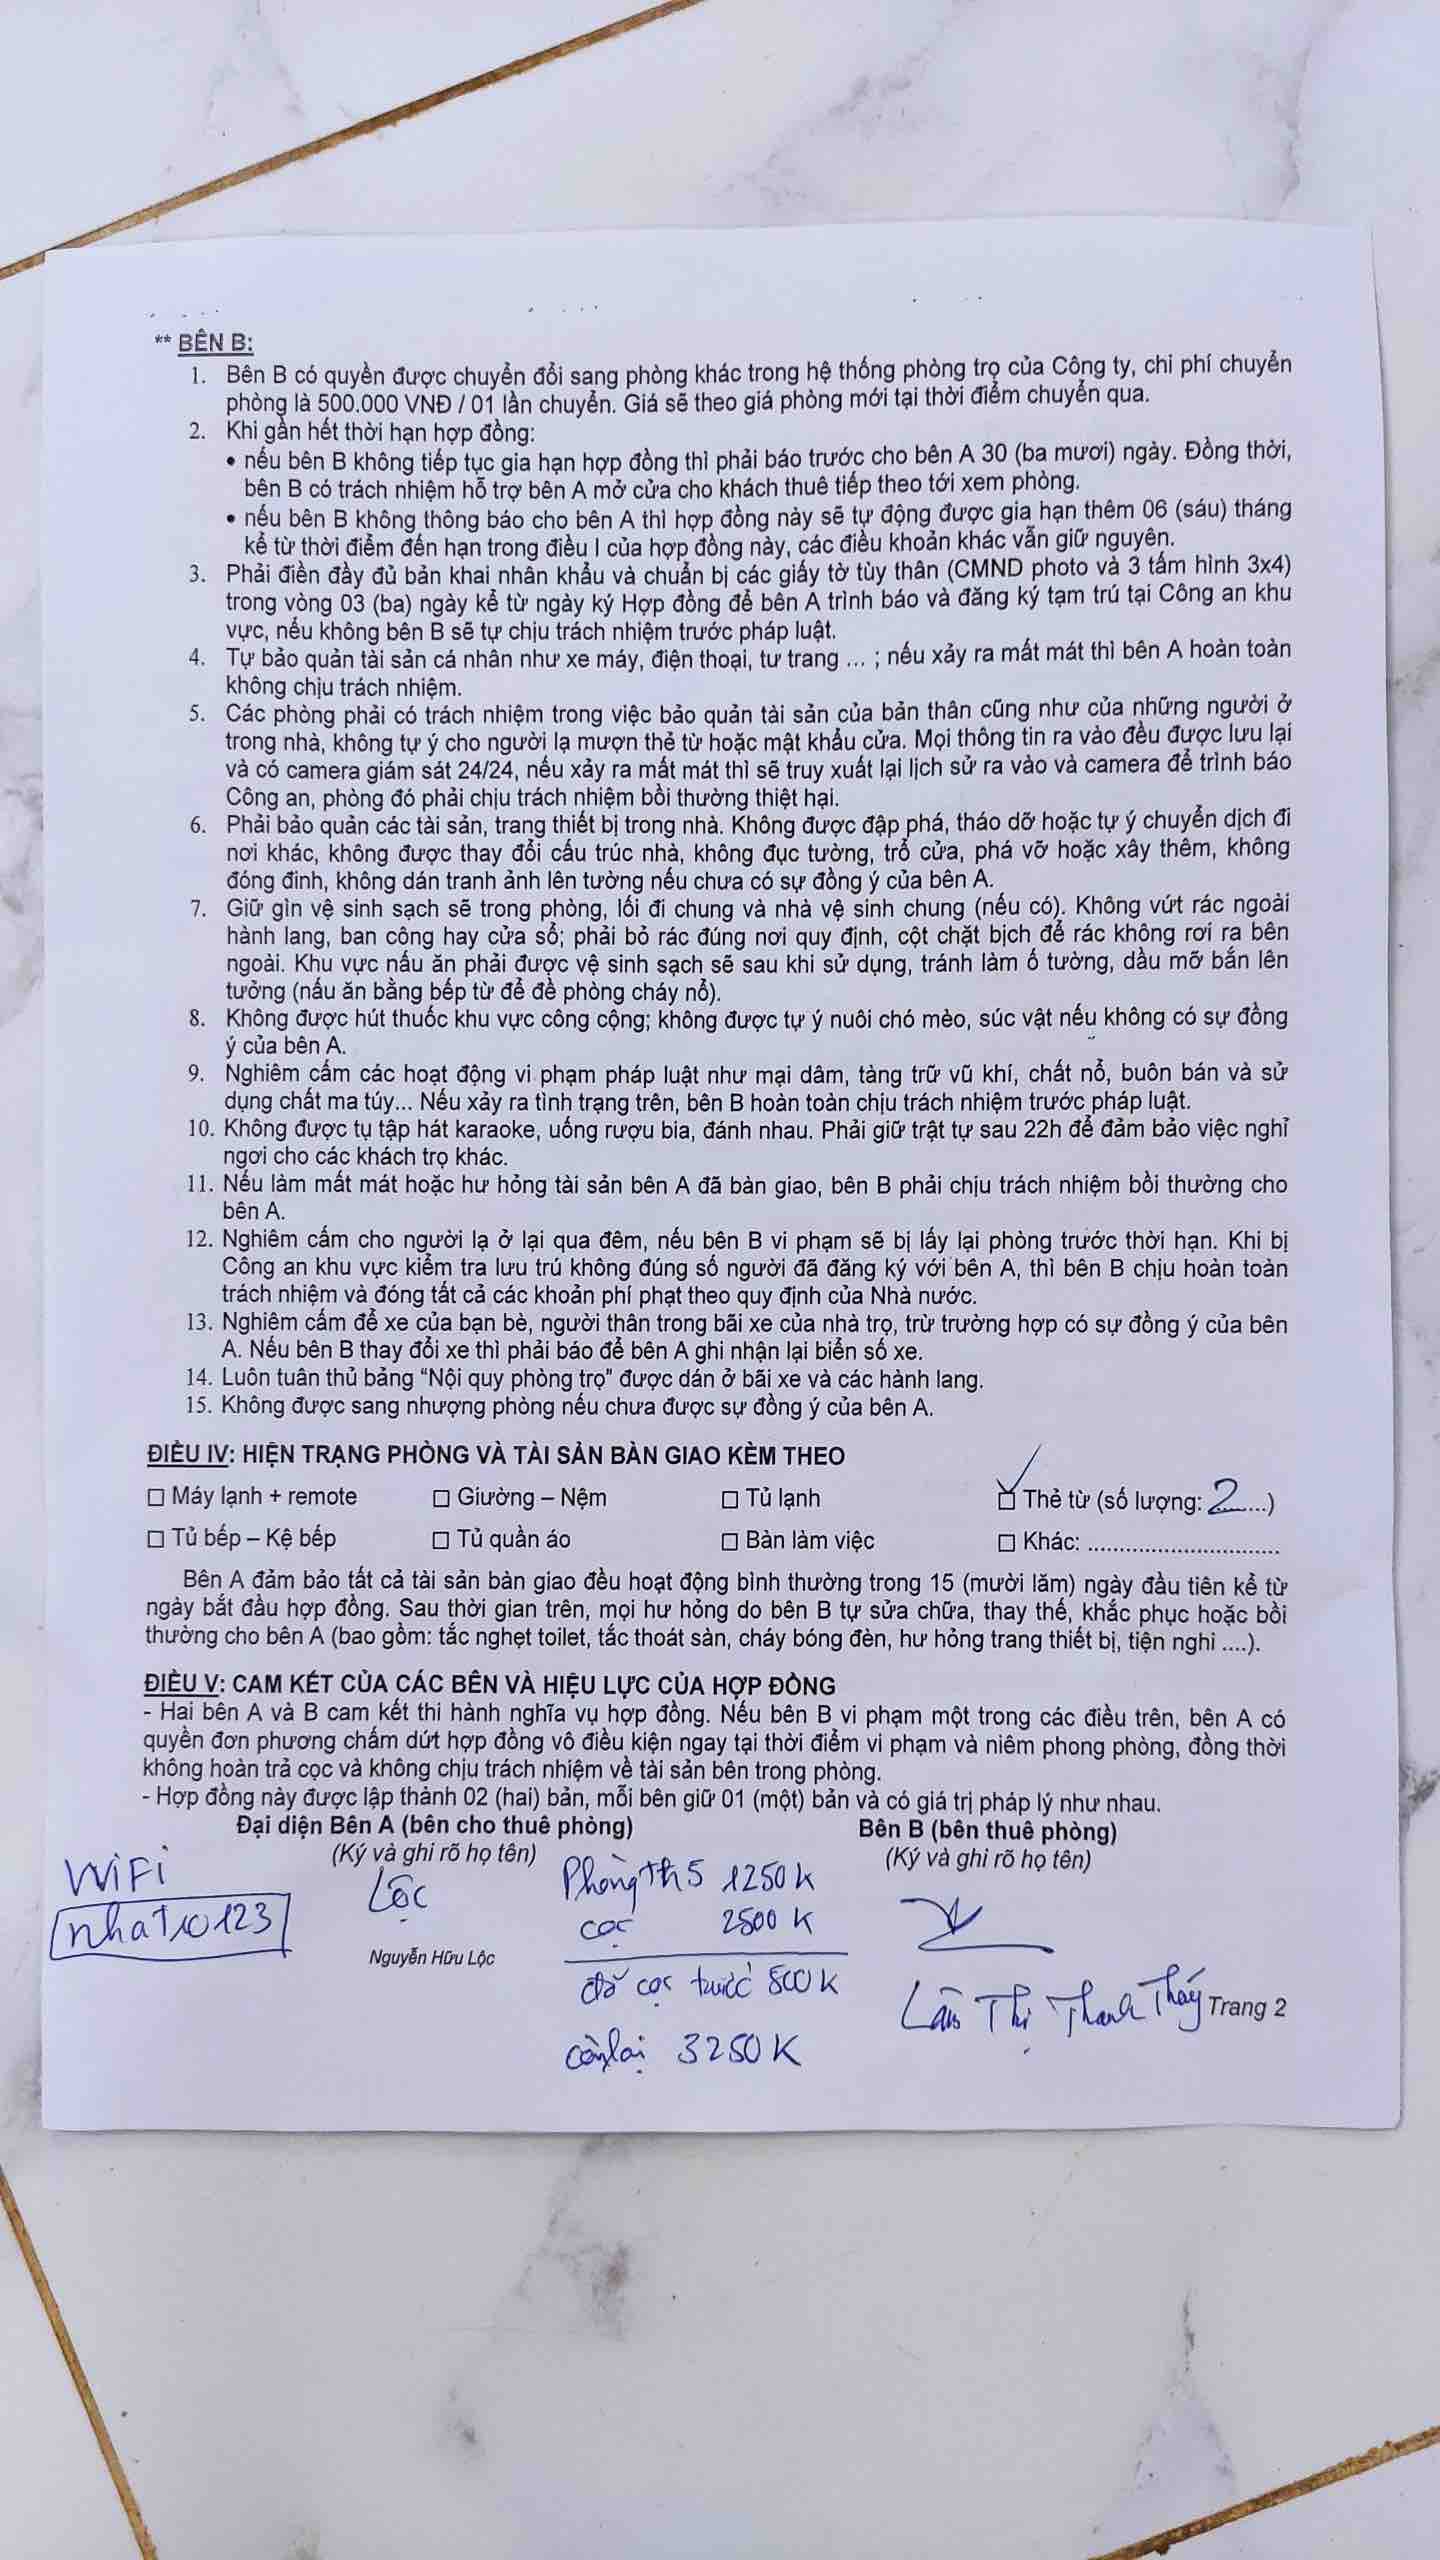 ** BÊN B:
1. Bên B có quyền được chuyển đổi sang phòng khác trong hệ thống phòng trọ của Công ty, chi phí chuyển
phòng là 500.000 VNĐ / 01 lần chuyển. Giá sẽ theo giá phòng mới tại thời điểm chuyển qua.
2. Khi gần hết thời hạn hợp đồng:
• nếu bên B không tiếp tục gia hạn hợp đồng thì phải báo trước cho bên A 30 (ba mươi) ngày. Đồng thời,
bên B có trách nhiệm hỗ trợ bên A mở cửa cho khách thuê tiếp theo tới xem phòng.
• nếu bên B không thông báo cho bên A thì hợp đồng này sẽ tự động được gia hạn thêm 06 (sáu) tháng
kể từ thời điểm đến hạn trong điều I của hợp đồng này, các điều khoản khác vẫn giữ nguyên.
3. Phải điền đầy đủ bản khai nhân khẩu và chuẩn bị các giấy tờ tùy thân (CMND photo và 3 tấm hình 3x4)
trong vòng 03 (ba) ngày kể từ ngày ký Hợp đồng để bên A trình báo và đăng ký tạm trú tại Công an khu
vực, nếu không bên B sẽ tự chịu trách nhiệm trước pháp luật.
4. Tự bảo quản tài sản cá nhân như xe máy, điện thoại, tư trang ... ; nếu xảy ra mất mát thì bên A hoàn toàn
không chịu trách nhiệm.
5. Các phòng phải có trách nhiệm trong việc bảo quản tài sản của bản thân cũng như của những người ở
trong nhà, không tự ý cho người lạ mượn thẻ từ hoặc mật khẩu cửa. Mọi thông tin ra vào đều được lưu lại
và có camera giám sát 24/24, nếu xảy ra mất mát thì sẽ truy xuất lại lịch sử ra vào và camera để trình báo
Công an, phòng đó phải chịu trách nhiệm bồi thường thiệt hại.
6. Phải bảo quản các tài sản, trang thiết bị trong nhà. Không được đập phá, tháo dỡ hoặc tự ý chuyển dịch đi
nơi khác, không được thay đổi cấu trúc nhà, không đục tường, trổ cửa, phá vỡ hoặc xây thêm, không
đóng đinh, không dán tranh ảnh lên tường nếu chưa có sự đồng ý của bên A.
7. Giữ gìn vệ sinh sạch sẽ trong phòng, lối đi chung và nhà vệ sinh chung (nếu có). Không vứt rác ngoài
hành lang, ban công hay cửa sổ; phải bỏ rác đúng nơi quy định, cột chặt bịch để rác không rơi ra bên
ngoài. Khu vực nấu ăn phải được vệ sinh sạch sẽ sau khi sử dụng, tránh làm ố tường, dầu mỡ bắn lên
tưởng (nấu ăn bằng bếp từ để đề phòng cháy nổ).
8. Không được hút thuốc khu vực công cộng; không được tự ý nuôi chó mèo, súc vật nếu không có sự đồng
ý của bên A.
9. Nghiêm cấm các hoạt động vi phạm pháp luật như mại dâm, tàng trữ vũ khí, chất nổ, buôn bán và sử
dụng chất ma túy... Nếu xảy ra tình trạng trên, bên B hoàn toàn chịu trách nhiệm trước pháp luật.
10. Không được tụ tập hát karaoke, uống rượu bia, đánh nhau. Phải giữ trật tự sau 22h để đảm bảo việc nghỉ
ngơi cho các khách trọ khác.
11. Nếu làm mất mát hoặc hư hỏng tài sản bên A đã bàn giao, bên B phải chịu trách nhiệm bồi thường cho
bên A.
12. Nghiêm cấm cho người lạ ở lại qua đêm, nếu bên B vi phạm sẽ bị lấy lại phòng trước thời hạn. Khi bị
Công an khu vực kiểm tra lưu trú không đúng số người đã đăng ký với bên A, thì bên B chịu hoàn toàn
trách nhiệm và đóng tất cả các khoản phí phạt theo quy định của Nhà nước.
13. Nghiêm cấm để xe của bạn bè, người thân trong bãi xe của nhà trọ, trừ trường hợp có sự đồng ý của bên
A. Nếu bên B thay đổi xe thì phải báo để bên A ghi nhận lại biển số xe.
14. Luôn tuân thủ bảng “Nội quy phòng trọ” được dán ở bãi xe và các hành lang.
15. Không được sang nhượng phòng nếu chưa được sự đồng ý của bên A.
ĐIỀU IV: HIỆN TRẠNG PHÒNG VÀ TÀI SẢN BÀN GIAO KÈM THEO
☐ Máy lạnh + remote ☐ Giường – Nệm ☐ Tủ lạnh ☑ Thẻ từ (số lượng: 2......)
☐ Tủ bếp – Kệ bếp ☐ Tủ quần áo ☐ Bàn làm việc ☐ Khác: ..............................
Bên A đảm bảo tất cả tài sản bàn giao đều hoạt động bình thường trong 15 (mười lăm) ngày đầu tiên kể từ
ngày bắt đầu hợp đồng. Sau thời gian trên, mọi hư hỏng do bên B tự sửa chữa, thay thế, khắc phục hoặc bồi
thường cho bên A (bao gồm: tắc nghẹt toilet, tắc thoát sàn, cháy bóng đèn, hư hỏng trang thiết bị, tiện nghi ....).
ĐIỀU V: CAM KẾT CỦA CÁC BÊN VÀ HIỆU LỰC CỦA HỢP ĐỒNG
- Hai bên A và B cam kết thi hành nghĩa vụ hợp đồng. Nếu bên B vi phạm một trong các điều trên, bên A có
quyền đơn phương chấm dứt hợp đồng vô điều kiện ngay tại thời điểm vi phạm và niêm phong phòng, đồng thời
không hoàn trả cọc và không chịu trách nhiệm về tài sản bên trong phòng.
- Hợp đồng này được lập thành 02 (hai) bản, mỗi bên giữ 01 (một) bản và có giá trị pháp lý như nhau.
Đại diện Bên A (bên cho thuê phòng) Bên B (bên thuê phòng)
(Ký và ghi rõ họ tên) (Ký và ghi rõ họ tên)
WiFi Lộc Phòng th5 1250K
nhatro123 cọc 2500K
Nguyễn Hữu Lộc
đã cọc trước 500K
Lâm Thị Thanh Thúy Trang 2
còn lại 3250K